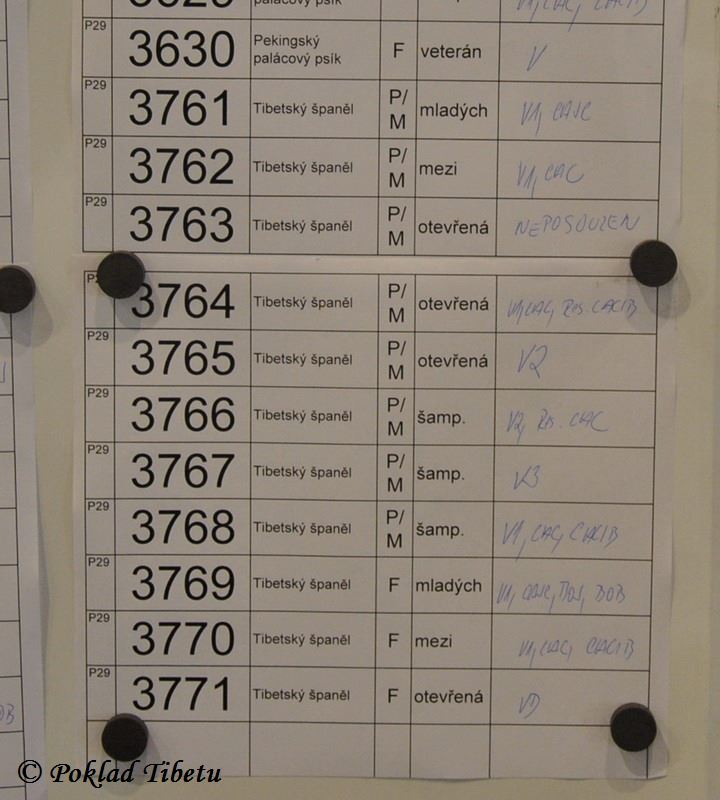 palácový psík
P29 3630 Pekingský palácový psík F veterán V
P29 3761 Tibetský španěl P/M mladých V1, CAJC
P29 3762 Tibetský španěl P/M mezi V1, CAC
P29 3763 Tibetský španěl P/M otevřená NEPOSOUZEN
3764 Tibetský španěl P/M otevřená V1, CAC, Res. CACIB
P29 3765 Tibetský španěl P/M otevřená V2
P29 3766 Tibetský španěl P/M šamp. V2, Res. CAC
P29 3767 Tibetský španěl P/M šamp. V3
P29 3768 Tibetský španěl P/M šamp. V1, CAC, CACIB
P29 3769 Tibetský španěl F mladých V1, CAJC, BOJ, BOB
P29 3770 Tibetský španěl F mezi V1, CAC, CACIB
P29 3771 Tibetský španěl F otevřená
© Poklad Tibetu